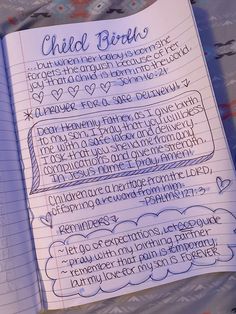 Child Birth
...but when her baby is born she
forgets the anguish because of her
joy that a child is born into the world.
-John 16:21
A PRAYER FOR A SAFE DELIVERY!
Dear Heavenly Father, as I give birth
to my son, I pray that you will bless
me with a safe labor and delivery.
I ask that you shield me from any
complications and give me strength.
In Jesus name I pray, Amen!
Children are a heritage from the LORD,
offspring a reward from him.
-PSALM 127:3
REMINDERS
~ let go of expectations. Let GOD guide
~ pray with my birthing partner
~ remember that pain is temporary,
but my love for my son is FOREVER